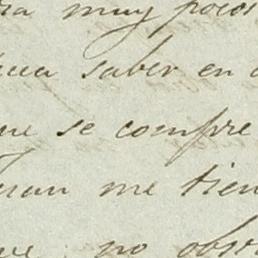 muy pocos
saber en
se compre
me tien
no obs